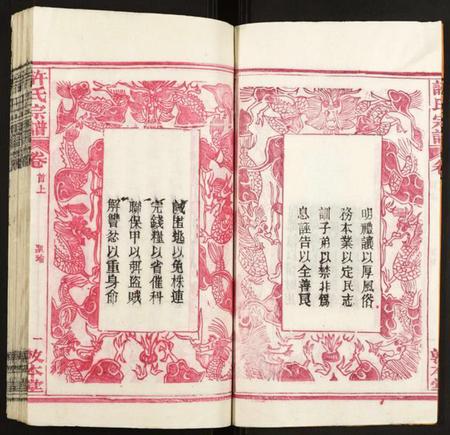 許氏宗譜
卷
明禮讓以厚風俗
務本業以定民志
訓子弟以禁非為
息誣告以全善良
誡匿逃以免株連
完錢糧以省催科
聯保甲以弭盜賊
解讐忿以重身命
許氏宗譜
卷
首上
聖諭
一
敦本堂
敦本堂